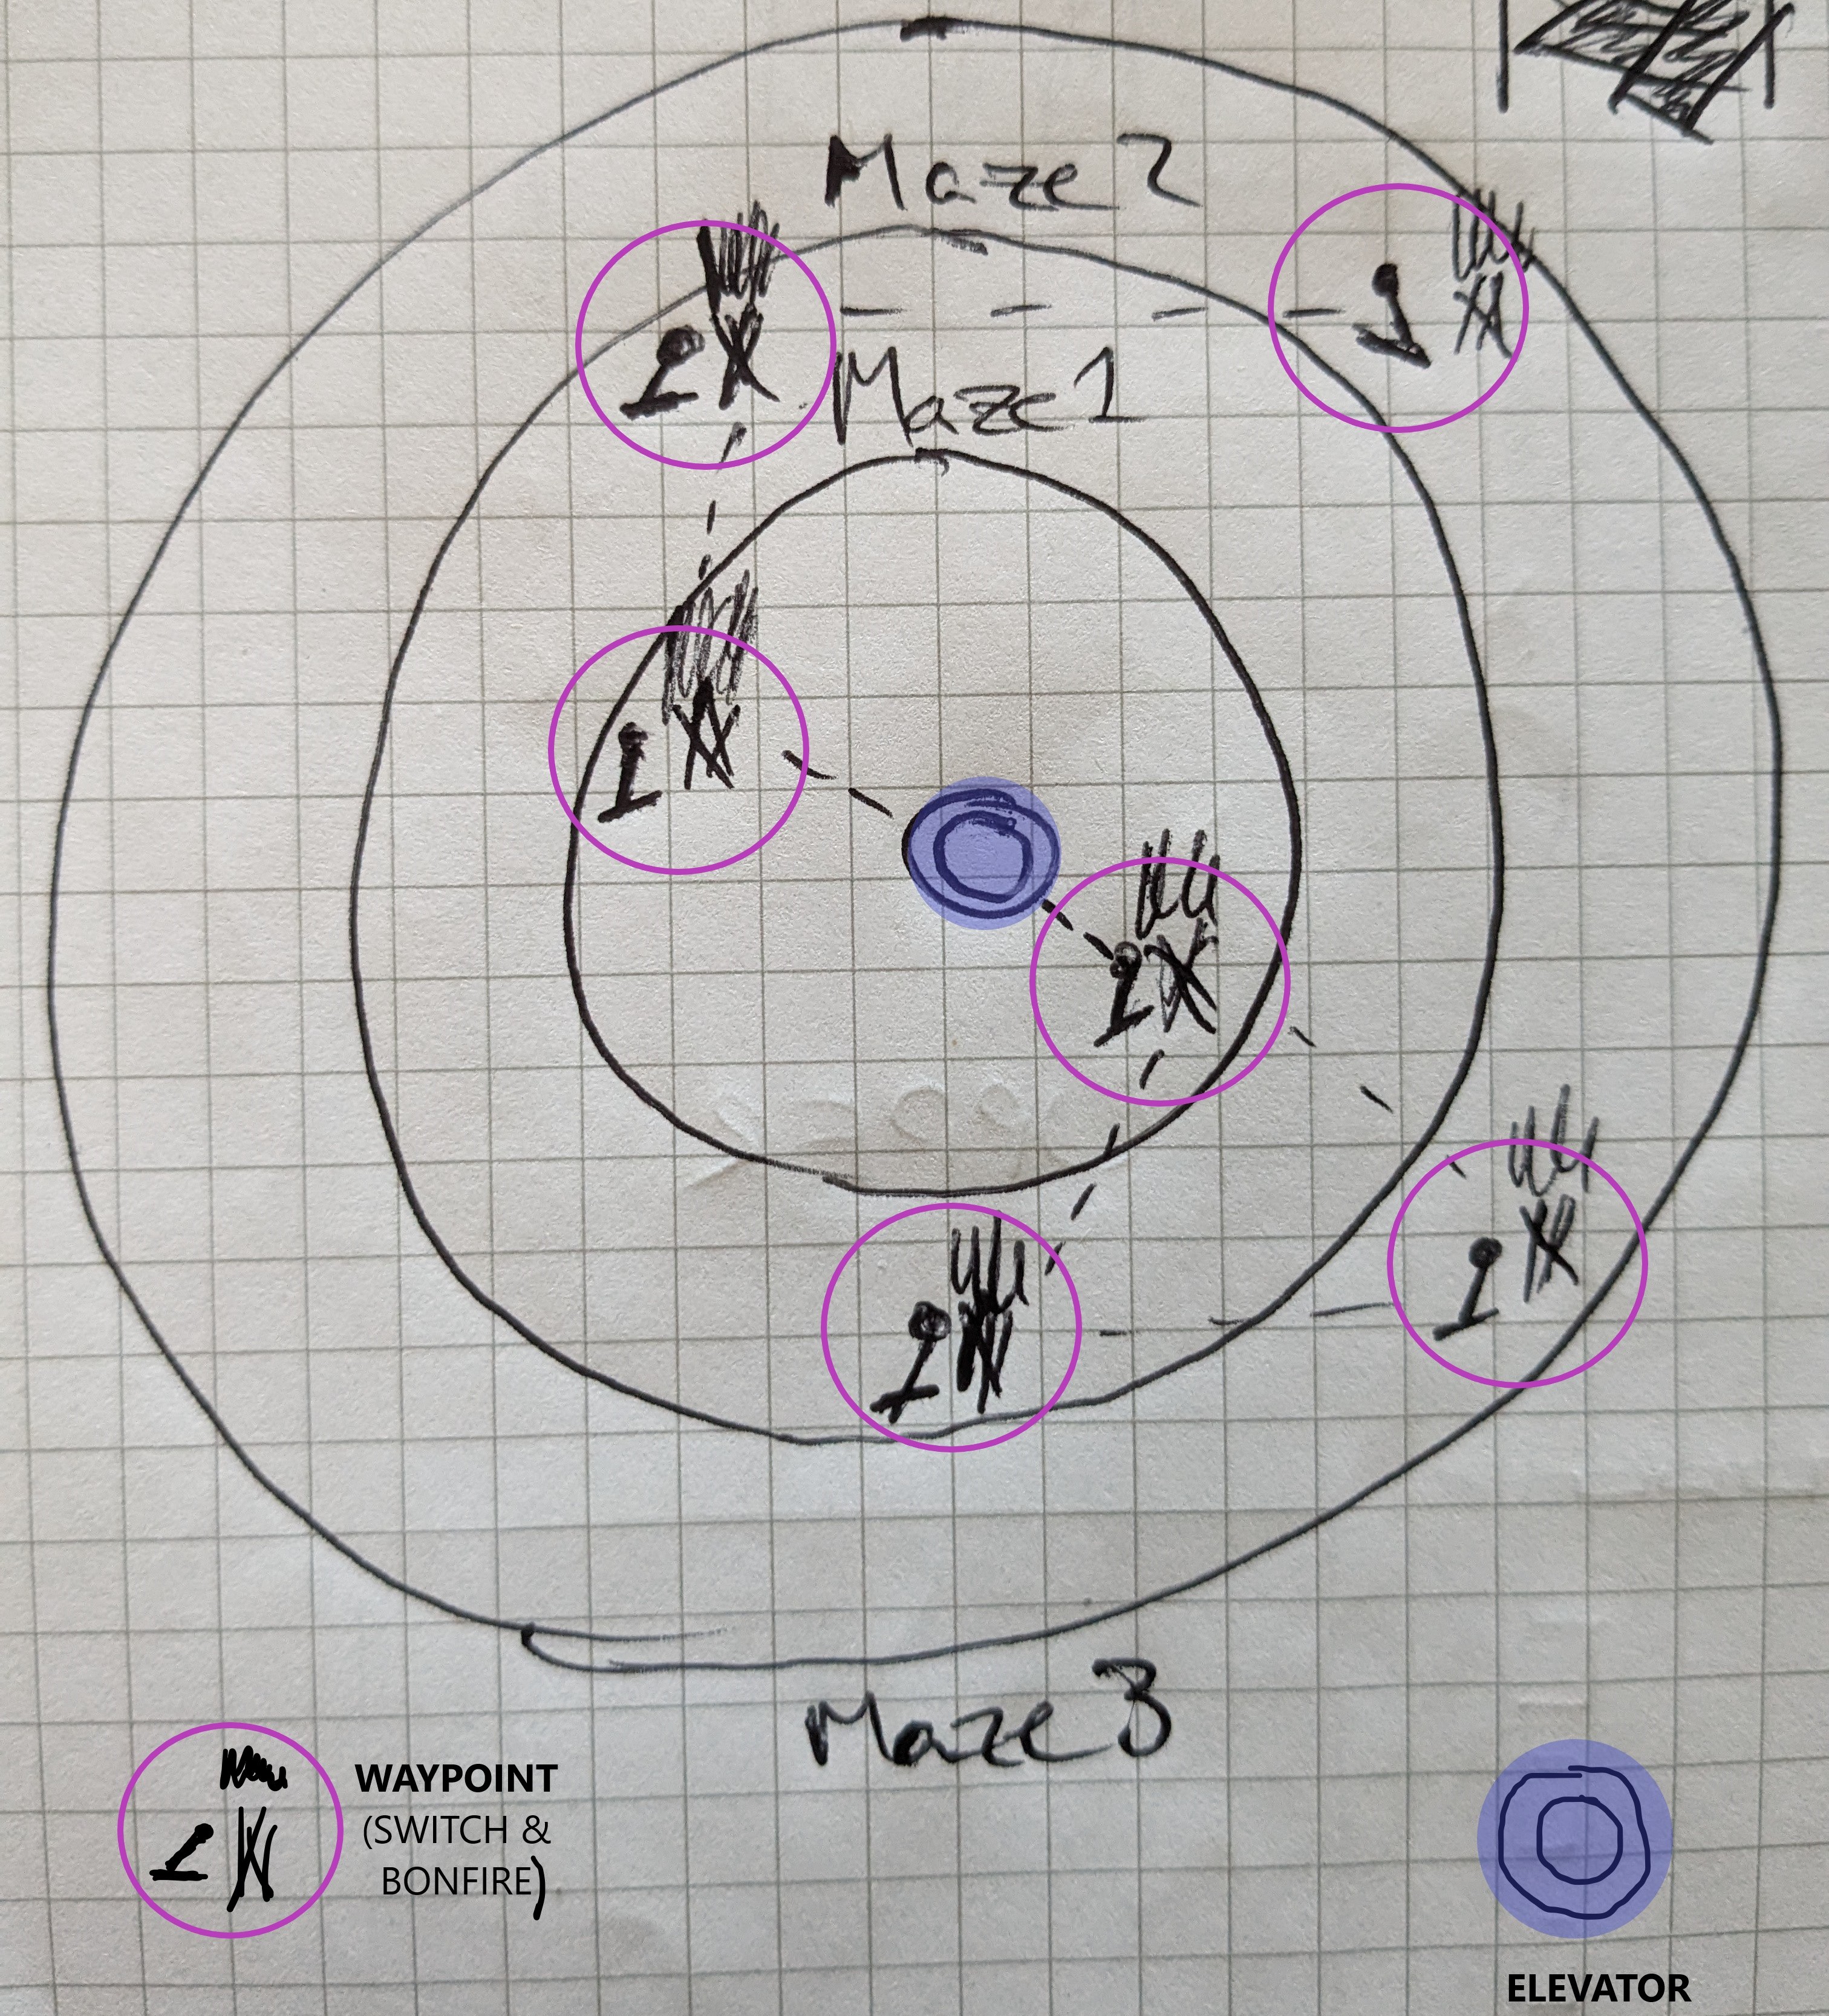 Maze 2
Maze 1
Maze 3
WAYPOINT
(SWITCH &
BONFIRE)
ELEVATOR